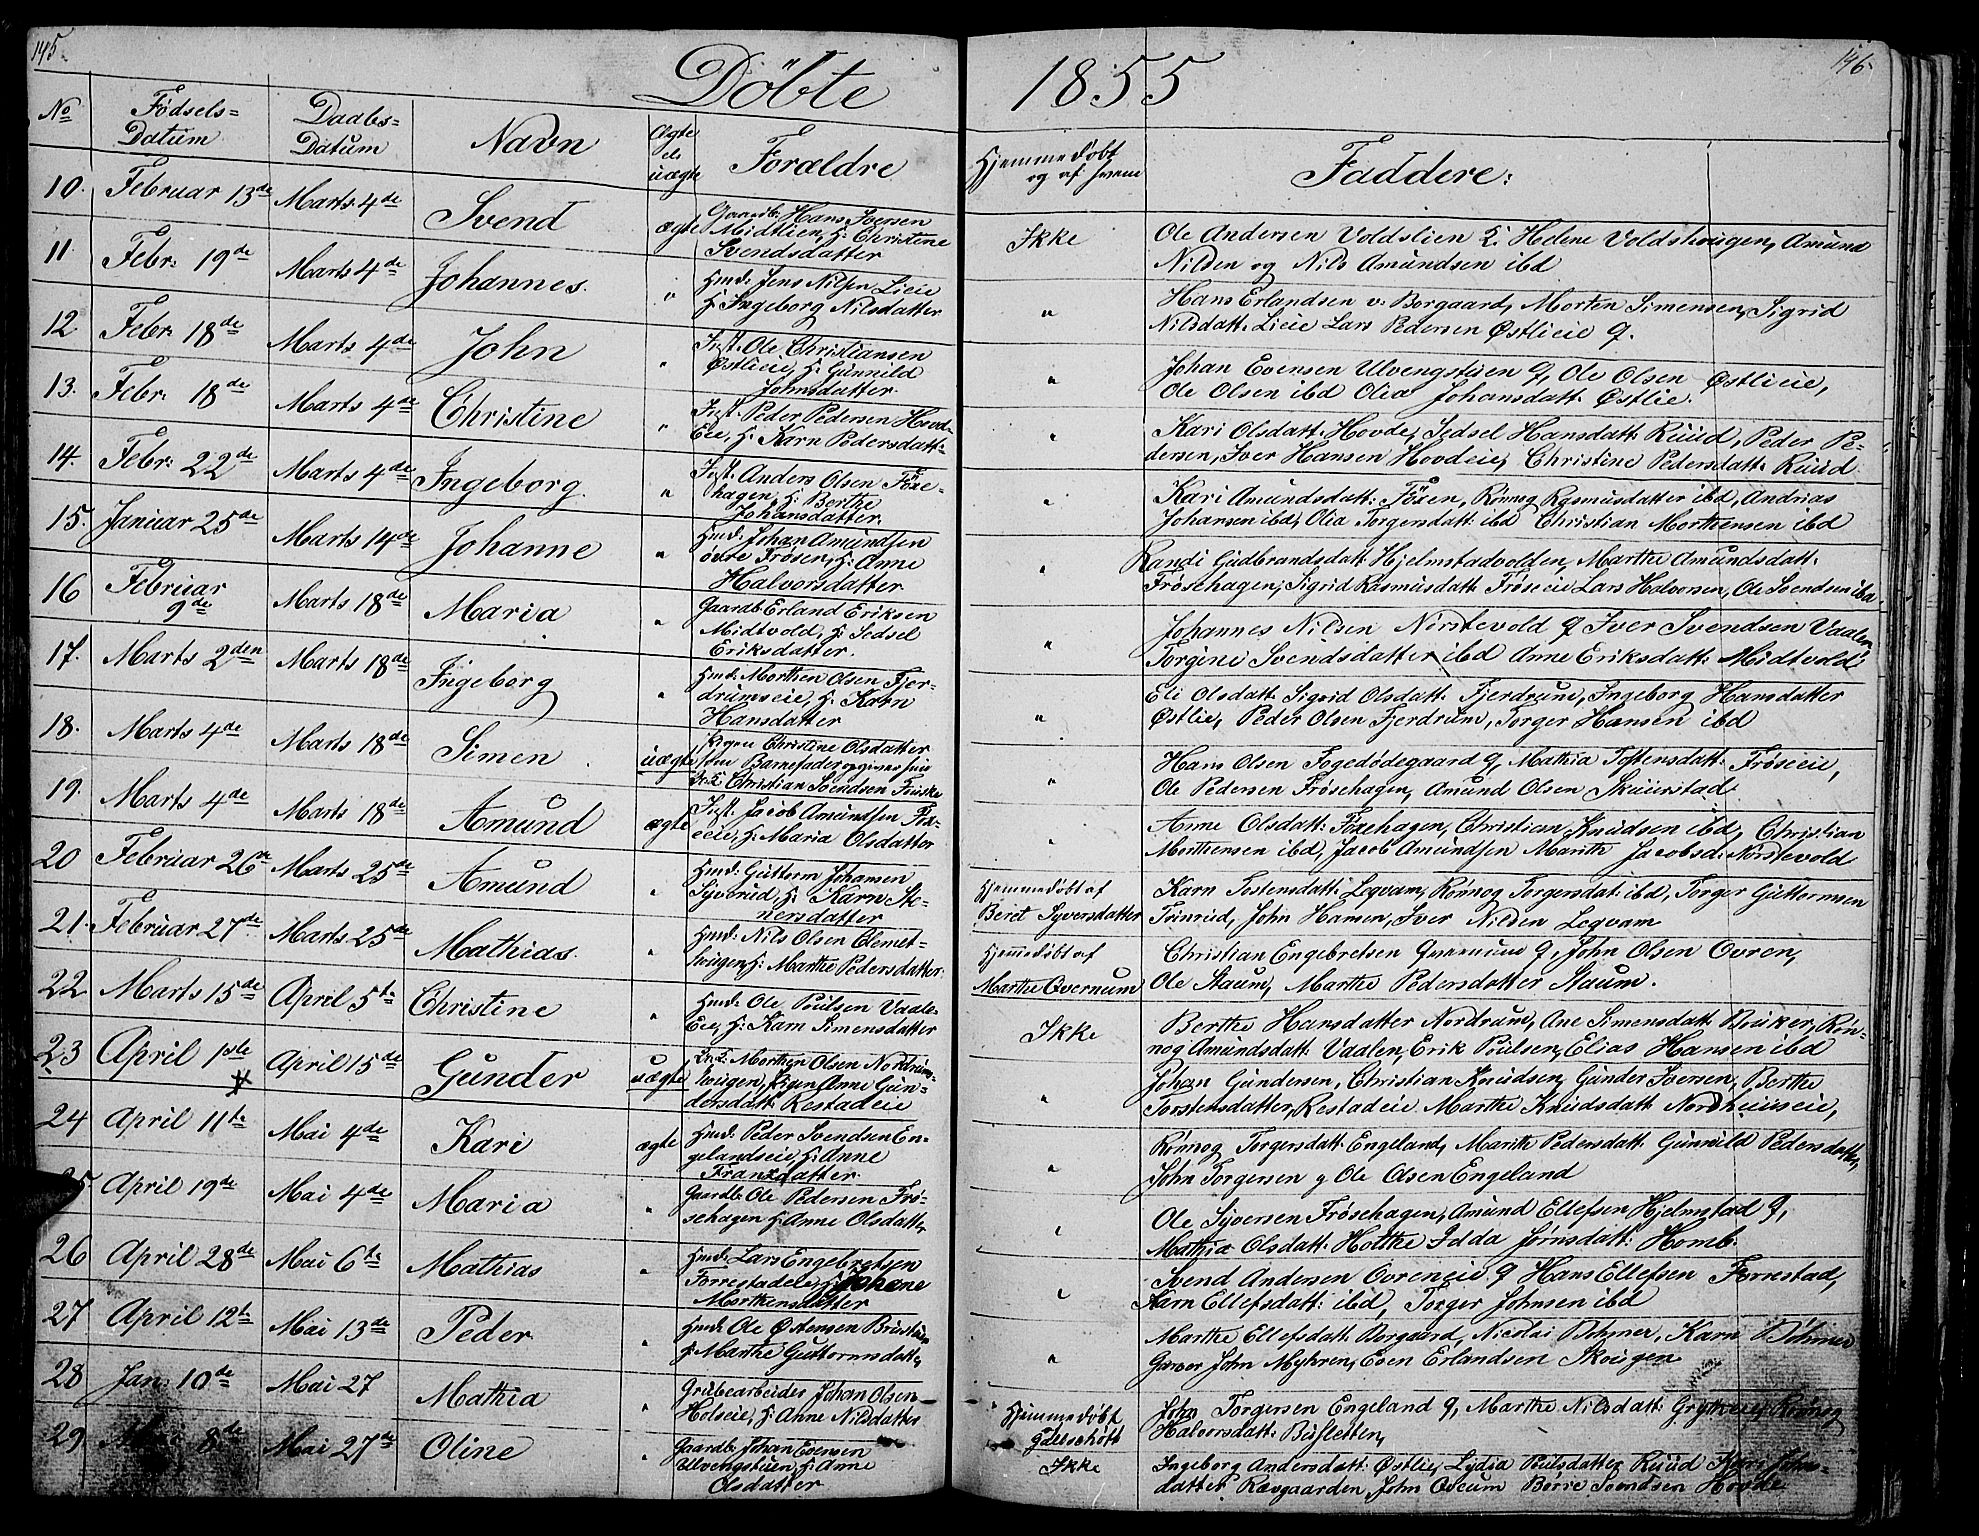 145.
146.
Döbte 1855
No
Fødsels-
Datum
Daabs-
Datum
Navn
Ægte
el.
uægte
Forældre
Hjemmedøbt
og af hvem
Faddere:
10. Februar 13de Marts 4de Svend ægte
Gaardb: Hans Iversen
Midtlien, h: Christine
Svendsdatter
Ikke
Ole Andersen Voldslien Q: Helene Voldshougen, Amund
Nilden og Nils Amundsen ibd
11. Febr: 19de Marts 4de Johannes. "
Hmd: Jens Nilsen Lieie
h: Ingeborg Nilsdatter
"
Hans Erlandsen v: Borgaard, Morten Simensen, Sigrid
Nilsdatt: Lieie Lars Pedersen Østlieie Q.
12 Febr: 18de Marts 4de John "
Inst. Ole Christiansen
Østlieie, h: Gunnild
Johnsdatter
"
Johan Evensen Ulvengstuen Q, Ole Olsen Østlieie,
Ole Olsen ibd Olia Johansdatt: Østlie.
13. Febr: 18de Marts 4de Christine "
Inst: Peder Pedersen Hovd-
Eie, h: Karn Pedersdatt:
"
Kari Olsdatt: Hovde, Sedsel Hansdatt: Ruud, Peder Pe-
dersen, Iver Hansen Hovdeie, Christine Pedersdatt: Ruud
14. Febr: 22de Marts 4de Ingeborg. "
Inst: Anders Olsen Föxe-
hagen, h: Berthe
Johansdatter
"
Kari Amundsdatt: Föxen, Rønnog Rasmusdatter ibd, Andrias
Johansen ibd, Olia Torgersdatt: ibd Christian Morthensen ibd
15. Januar 25de Marts 14de Johanne "
Hmd: Johan Amundsen
øvre Frösen, h: Anne
Halvorsdatter
"
Randi Gudbrandsdatt: Hjelmstadvolden, Marthe Amundsdatt:
Frösehagen, Sigrid Rasmusdatt: Fröseeie Lars Halvorsen, Ole Svendsen ibd
16 Februar
9de Marts 18de Maria "
Gaardb: Erland Eriksen
Midtvold, h: Sedsel
Eriksdatter.
"
Johannes Nilsen Nørstevold Q Iver Svendsen Vaalen
Torgine Svendsdatter ibd Anne Eriksdatt: Midtvold,
17. Marts 2den Marts 18de Ingeborg "
Hmd: Morthen Olsen Fjer-
drumseie, h: Karn
Hansdatter
"
Eli Olsdatt: Sigrid Olsdatt: Fjerdrum, Ingeborg Hansdatter
Østlie, Peder Olsen Fjerdrum, Torger Hansen ibd
18. Marts 4de Marts 18de Simen uægte
Pigen Christine Olsdatter
som Barnefader opgives
Christian Svendsen
"
Hans Olsen Fogedødegaard Q, Mathia Tostensdatt: Fröseeie,
Ole Pedersen Frösehagen, Amund Olsen Skuurstad
19. Marts 4de Marts 18de Amund ægte
Inst: Jacob Amundsen Föx-
eeie, h: Maria Olsdatter
"
Anne Olsdatt: Föxehagen, Christian Knudsen ibd, Christian
Morthensen ibd, Jacob Amundsen Marith Jacobsd: Nørstevold
20 Februar 26de Marts 25de Amund "
Hmd: Guttorm Johansen
Syverud, h: Karn Ste-
nersdatter
Hjemmedøbt af
Beret Syversdatter
Karn Tostensdatt: Legvam, Rønnog Torgersdat: ibd, Torger Guttormsen
Trinrud, John Hansen, Iver Nilden Legvam
21. Februar 27de Marts 25de Mathias. "
Hmd: Nils Olsen Clemet-
hougen, h: Marthe Pedersdatter
Hjemmedøbt af
Marthe Overnum
Christian Engebretsen Q, John Olsen Ovren,
Ole Staum, Marthe Pedersdatter Staum.
22 Marts 15de April 5te Christine "
Hmd: Ole Poulsen Vaale-
Eie, h: Karn Simensdatter
Ikke
Berthe Hansdatter Nordrum, Ane Simensdatt: Bruker, Røn-
nog Amundsdatt: Vaalen, Erik Poulsen, Elias Hansen ibd
23 April 1ste April 15de Gunder uægte
Morthen Olsen Nordrum-
hougen, Pigen Anne Gun-
dersdatt: Restadeie
"
Johan Gundersen, Christian Knudsen, Gunder Iversen, Berthe
Torstensdatter, Restadeie Marthe Knudsdatt: Nordhuuseie,
24 April 11te Mai 4de Kari ægte
Hmd: Peder Svendsen En-
gelandseie h: Anne
Franzdatter
"
Rønnog Torgersdatt: Engeland, Marith Pedersdatt: Gunnild Pedersdatter,
John Torgersen g Ole Olsen Engeland
25 April 19de Mai 4de Maria "
Gaardb: Ole Pedersen Frö-
sehagen h: Anne Olsdatt,
"
Ole Syversen Frösehagen, Amund Ellefsen Hjelmstad Q,
Mathia Olsdatt: Holthe Idda Jørnsdatt: Homb.
26 April 28de Mai 6te Mathias "
Hmd: Lars Engebretsen
Forrestadeie, h: Johane
Morthensdatter
"
Svend Andersen Ovreneie Q Hans Ellefsen Forrestad,
Karn Ellefsdatt: ibid, Torger Johnsen ibd
27 April 12te Mai 13de Peder "
Hmd: Ole Østensen
h: Marthe Guttormsdatt,
"
Marthe Ellefsdatt: Borgaard, Nicolai Bohmer, Karn Böhmer
Garver John Myhren, Even Erlandsen Skougen
28 Jan: 10de Mai 27 Mathia "
Grubearbeider Johan Olsen
Holseie, h: Anne Nilsdatter
Hjemmedøbt
John Torgersen Engeland Q, Marthe Nilsdatt: Grytheeie, Rønnog
Halvorsdatt: Busletten,
29 8de Mai 27de Oline "
Gaardb: Johan Evensen
Ulvengstuen, h: Anne
Olsdatter
Ikke
Ingeborg Andersdatt: Østlie, Lydia Poulsdatter Ruud Kari John-
datter Rævgaarden, John Børre Svendsen Hovde